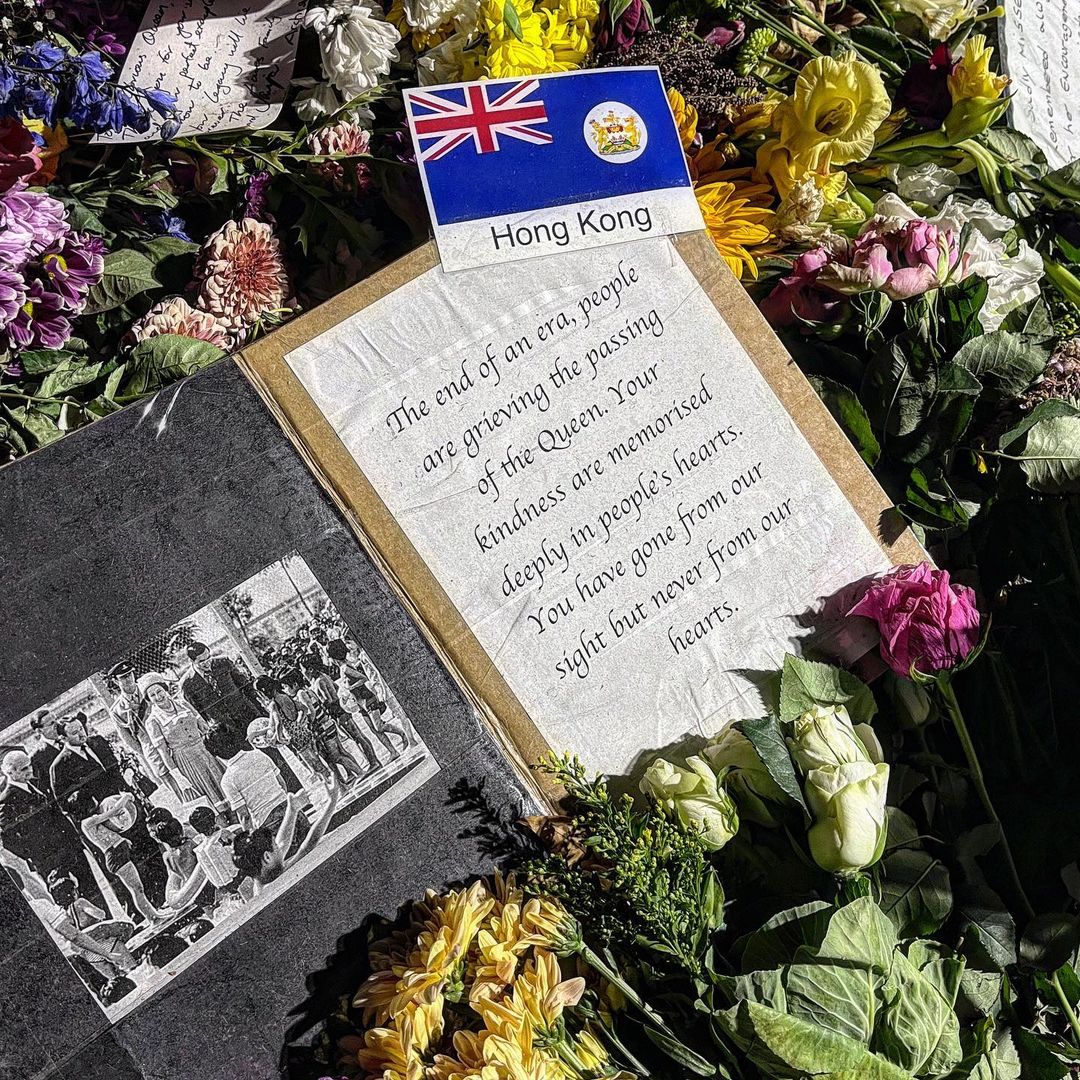 Hong Kong
The end of an era, people
are grieving the passing
of the Queen. Your
kindness are memorised
deeply in people's hearts.
You have gone from our
sight but never from our
hearts.